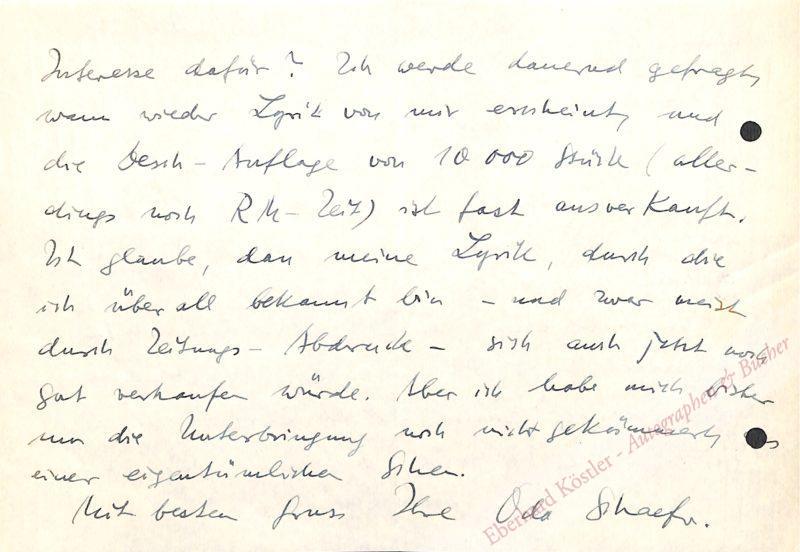 Interesse dafür? Ich werde dauernd gefragt,
wann wieder Lyrik von mir erscheint, und
die Desch-Auflage von 10 000 Stück (aller-
dings noch RM-Zeit) ist fast ausverkauft.
Ich glaube, dass meine Lyrik, durch die
ich überall bekannt bin – und zwar meist
durch Zeitungs-Abdruck – sich auch jetzt noch
gut verkaufen würde. Aber ich habe mich bisher
um die Unterbringung noch nicht gekümmert, aus
einer eigentümlichen Scheu.
Mit besten Gruss Ihre Oda Schaefer.
Eberhard Köstler - Autographen & Bücher